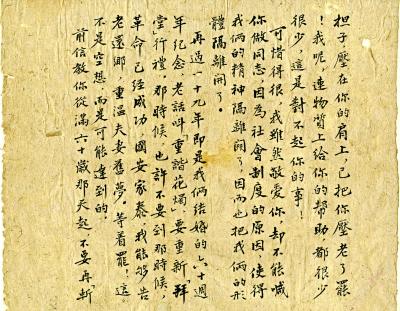 担子壓在你的肩上，已把你壓老了罷
！我呢，連物質上給你的幫助，都很少
很少，這是對不起你的事！
可惜得很，我雖然敬愛你，却不能喊
你做同志，因為社會制度的原因，使得
我倆的精神隔離開了，因而也把我倆的形
體隔離開了。
再過一十九年即是我倆結婚的六十週
年紀念，老話呌「重諧花燭」，要重新「拜
堂行禮」那時候，也許不要到那時候，
革命已經成功，國安家泰，我能够告
老還鄉，重温夫妻舊夢，等着罷！這
不是空想，而是可能達到的。
前信教你從滿六十歲那天起，不要再「斬